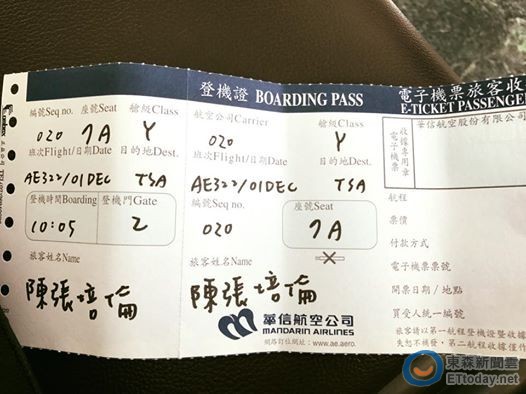 登機證 BOARDING PASS
電子機票旅客收
E-TICKET PASSENGE
編號Seq no. 座號Seat 艙級Class
020 7A Y
班次Flight/日期Date 目的地Dest.
AE322/01DEC TSA
登機時間Boarding 登機門Gate
10:05 2
旅客姓名Name
陳張培倫
航空公司Carrier 艙級Class
020 Y
班次Flight/日期Date 目的地Dest.
AE322/01DEC TSA
編號Seq no. 座號Seat
020 7A
旅客姓名Name
陳張培倫
華信航空公司
MANDARIN AIRLINES
網路訂位網址：www.ae.aero.
電子機票
收據專用章
華信航空股份有限公司
航程
票價
付款方式
電子機票票號
開票日期/地點
買受人統一編號
旅客請以第一航程登機證暨收據
失恕不補發，第二航程收據僅作
東森新聞雲
ETtoday.net